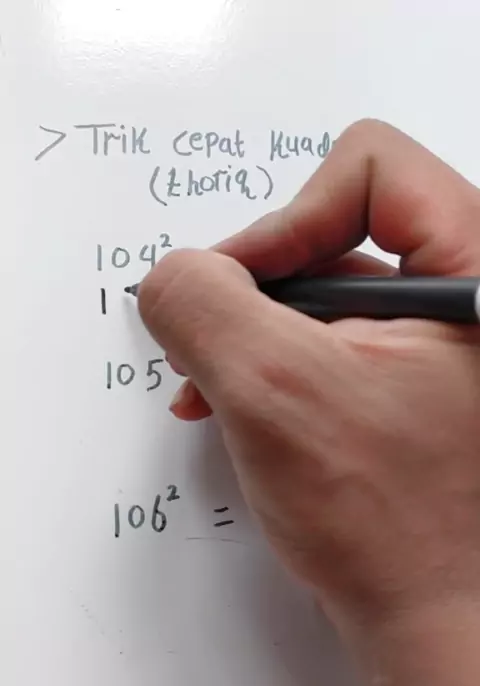 > Trik cepat
(thoriq)
104²
1
105
106² =